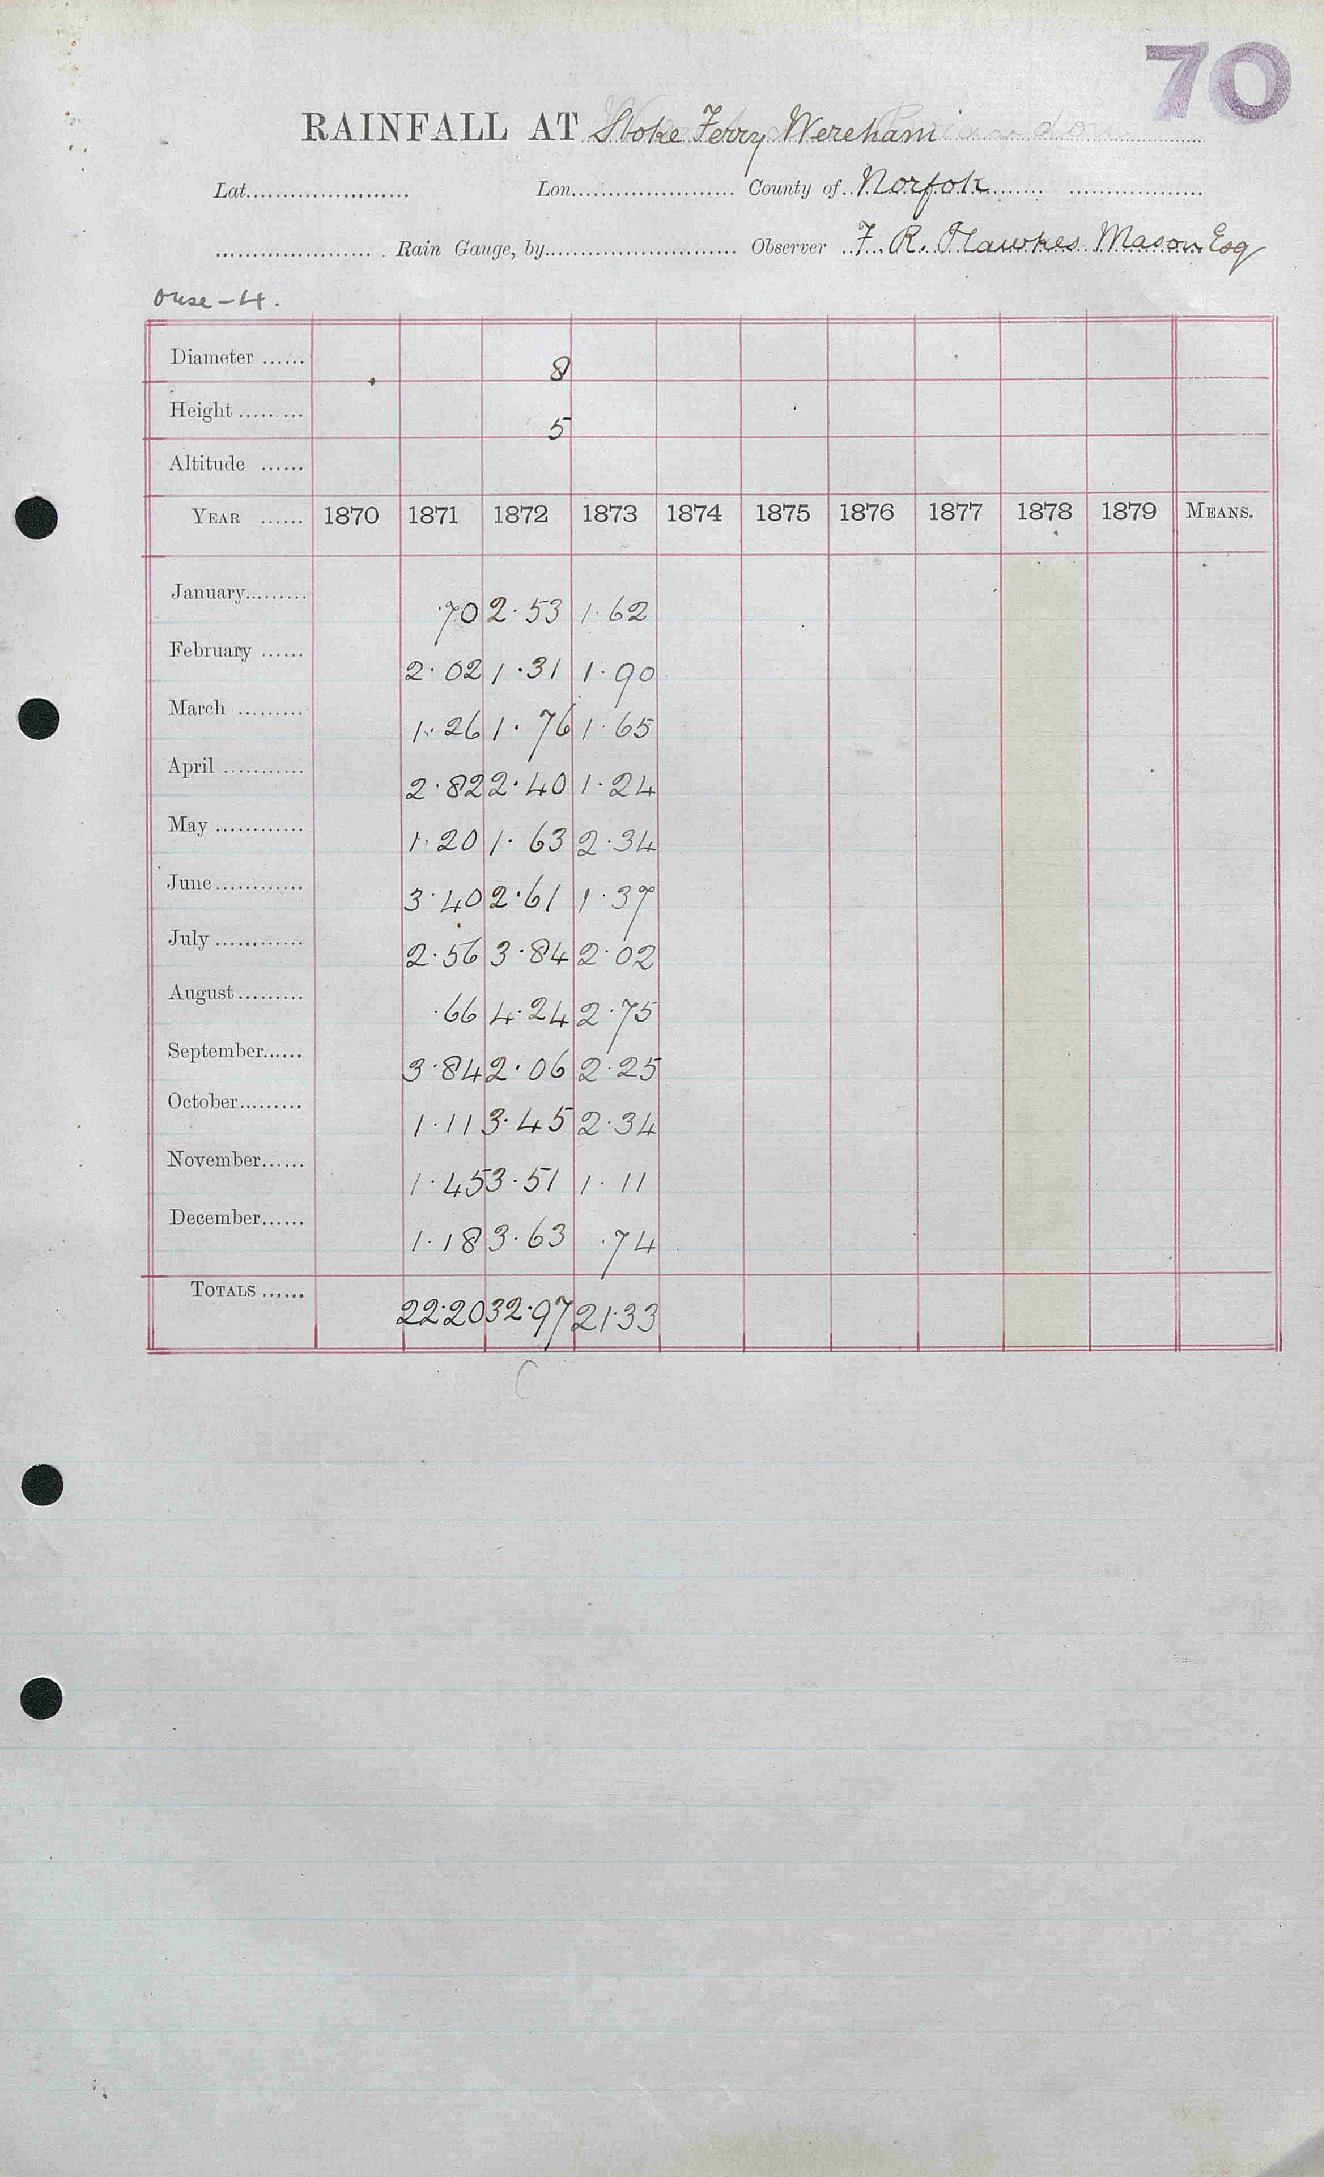 70
RAINFALL AT Stoke Ferry Wereham
Lat. Lon. County of Norfolk
Rain Gauge, by Observer F. R. Hawkes Mason Esq
Ouse - 4.
Diameter 8
Height 5
Altitude
YEAR 1870 1871 1872 1873 1874 1875 1876 1877 1878 1879 MEANS.
January .70 2.53 1.62
February 2.02 1.31 1.90
March 1.26 1.76 1.65
April 2.82 2.40 1.24
May 1.20 1.63 2.34
June 3.40 2.61 1.37
July 2.56 3.84 2.02
August .66 4.24 2.75
September 3.84 2.06 2.25
October 1.11 3.45 2.34
November 1.45 3.51 1.11
December 1.18 3.63 .74
TOTALS 22.20 32.97 21.33